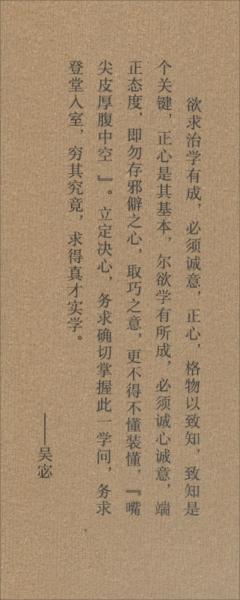 欲求治学有成，必须诚意，正心，格物以致知，致知是
个关键，正心是其基本，尔欲学有所成，必须诚心诚意，端
正态度，即勿存邪僻之心，取巧之意，更不得不懂装懂，『嘴
尖皮厚腹中空』。立定决心，务求确切掌握此一学问，务求
登堂入室，穷其究竟，求得真才实学。
——吴宓